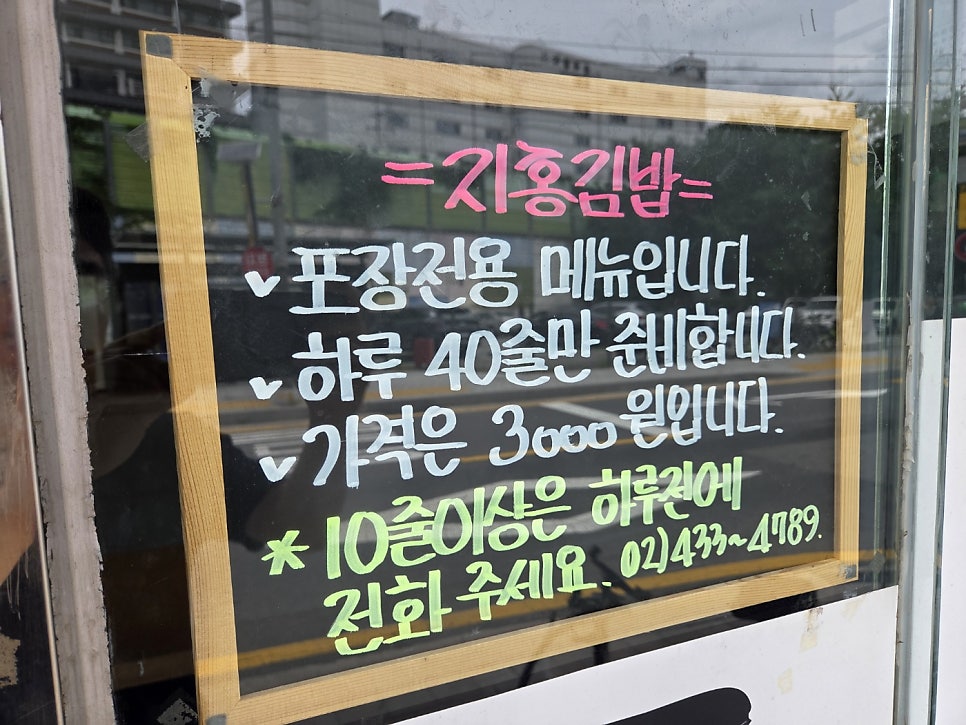 =지홍김밥=
✓포장전용 메뉴입니다.
✓하루 40줄만 준비합니다.
✓가격은 3000원입니다.
*10줄이상은 하루전에
전화 주세요. 02)433~4789.